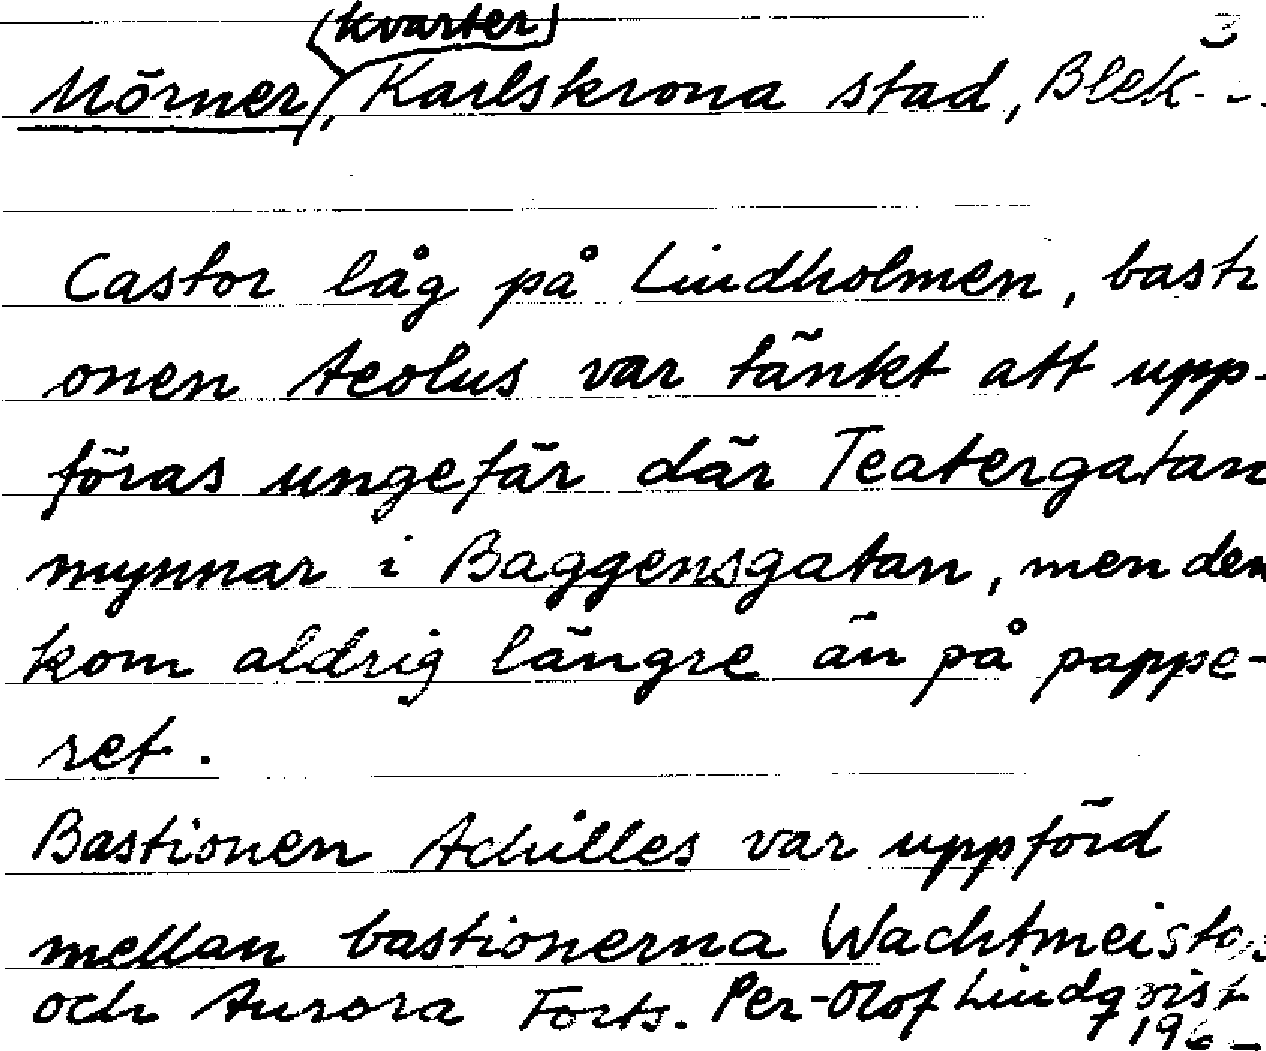 (kvarter) 3
Mörner, Karlskrona stad, Blek.
Castor låg på Lindholmen, basti
onen Aeolus var tänkt att upp-
föras ungefär där Teatergatan
mynnar i Baggensgatan, men den
kom aldrig längre än på pappe-
ret.
Bastionen Achilles var uppförd
mellan bastionerna Wachtmeister
och Aurora Forts. Per-Olof Lindqvist